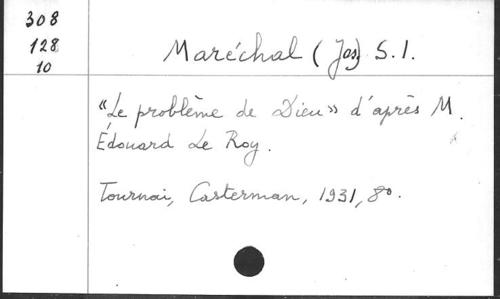 308
128
10
Maréchal (Jos) S. I.
“Le problème de Dieu” d'après M.
Édouard Le Roy.
Tournai, Casterman, 1931, 8°.